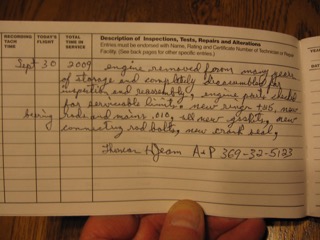 RECORDING TACH TIME
TODAY'S FLIGHT
TOTAL TIME IN SERVICE
Description of Inspections, Tests, Repairs and Alterations
Entries must be endorsed with Name, Rating and Certificate Number of Technician or Repair
Facility. (See back pages for other specific entries.)
Sept 30 2009 engine removed from many years
of storage and completely disassembled for
inspection and reassembly, engine parts checked
for serviceable limits, new rings +.015, new
bearing rods and mains .010, all new gaskets, new
connecting rod bolts, new crank seal,
A&P 369-32-5123